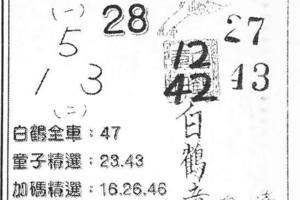 (一) 28
5
1 3
(二)
白鶴全車：47
童子精選：23.43
加碼精選：16.26.46
27
12
42 43
白鶴童